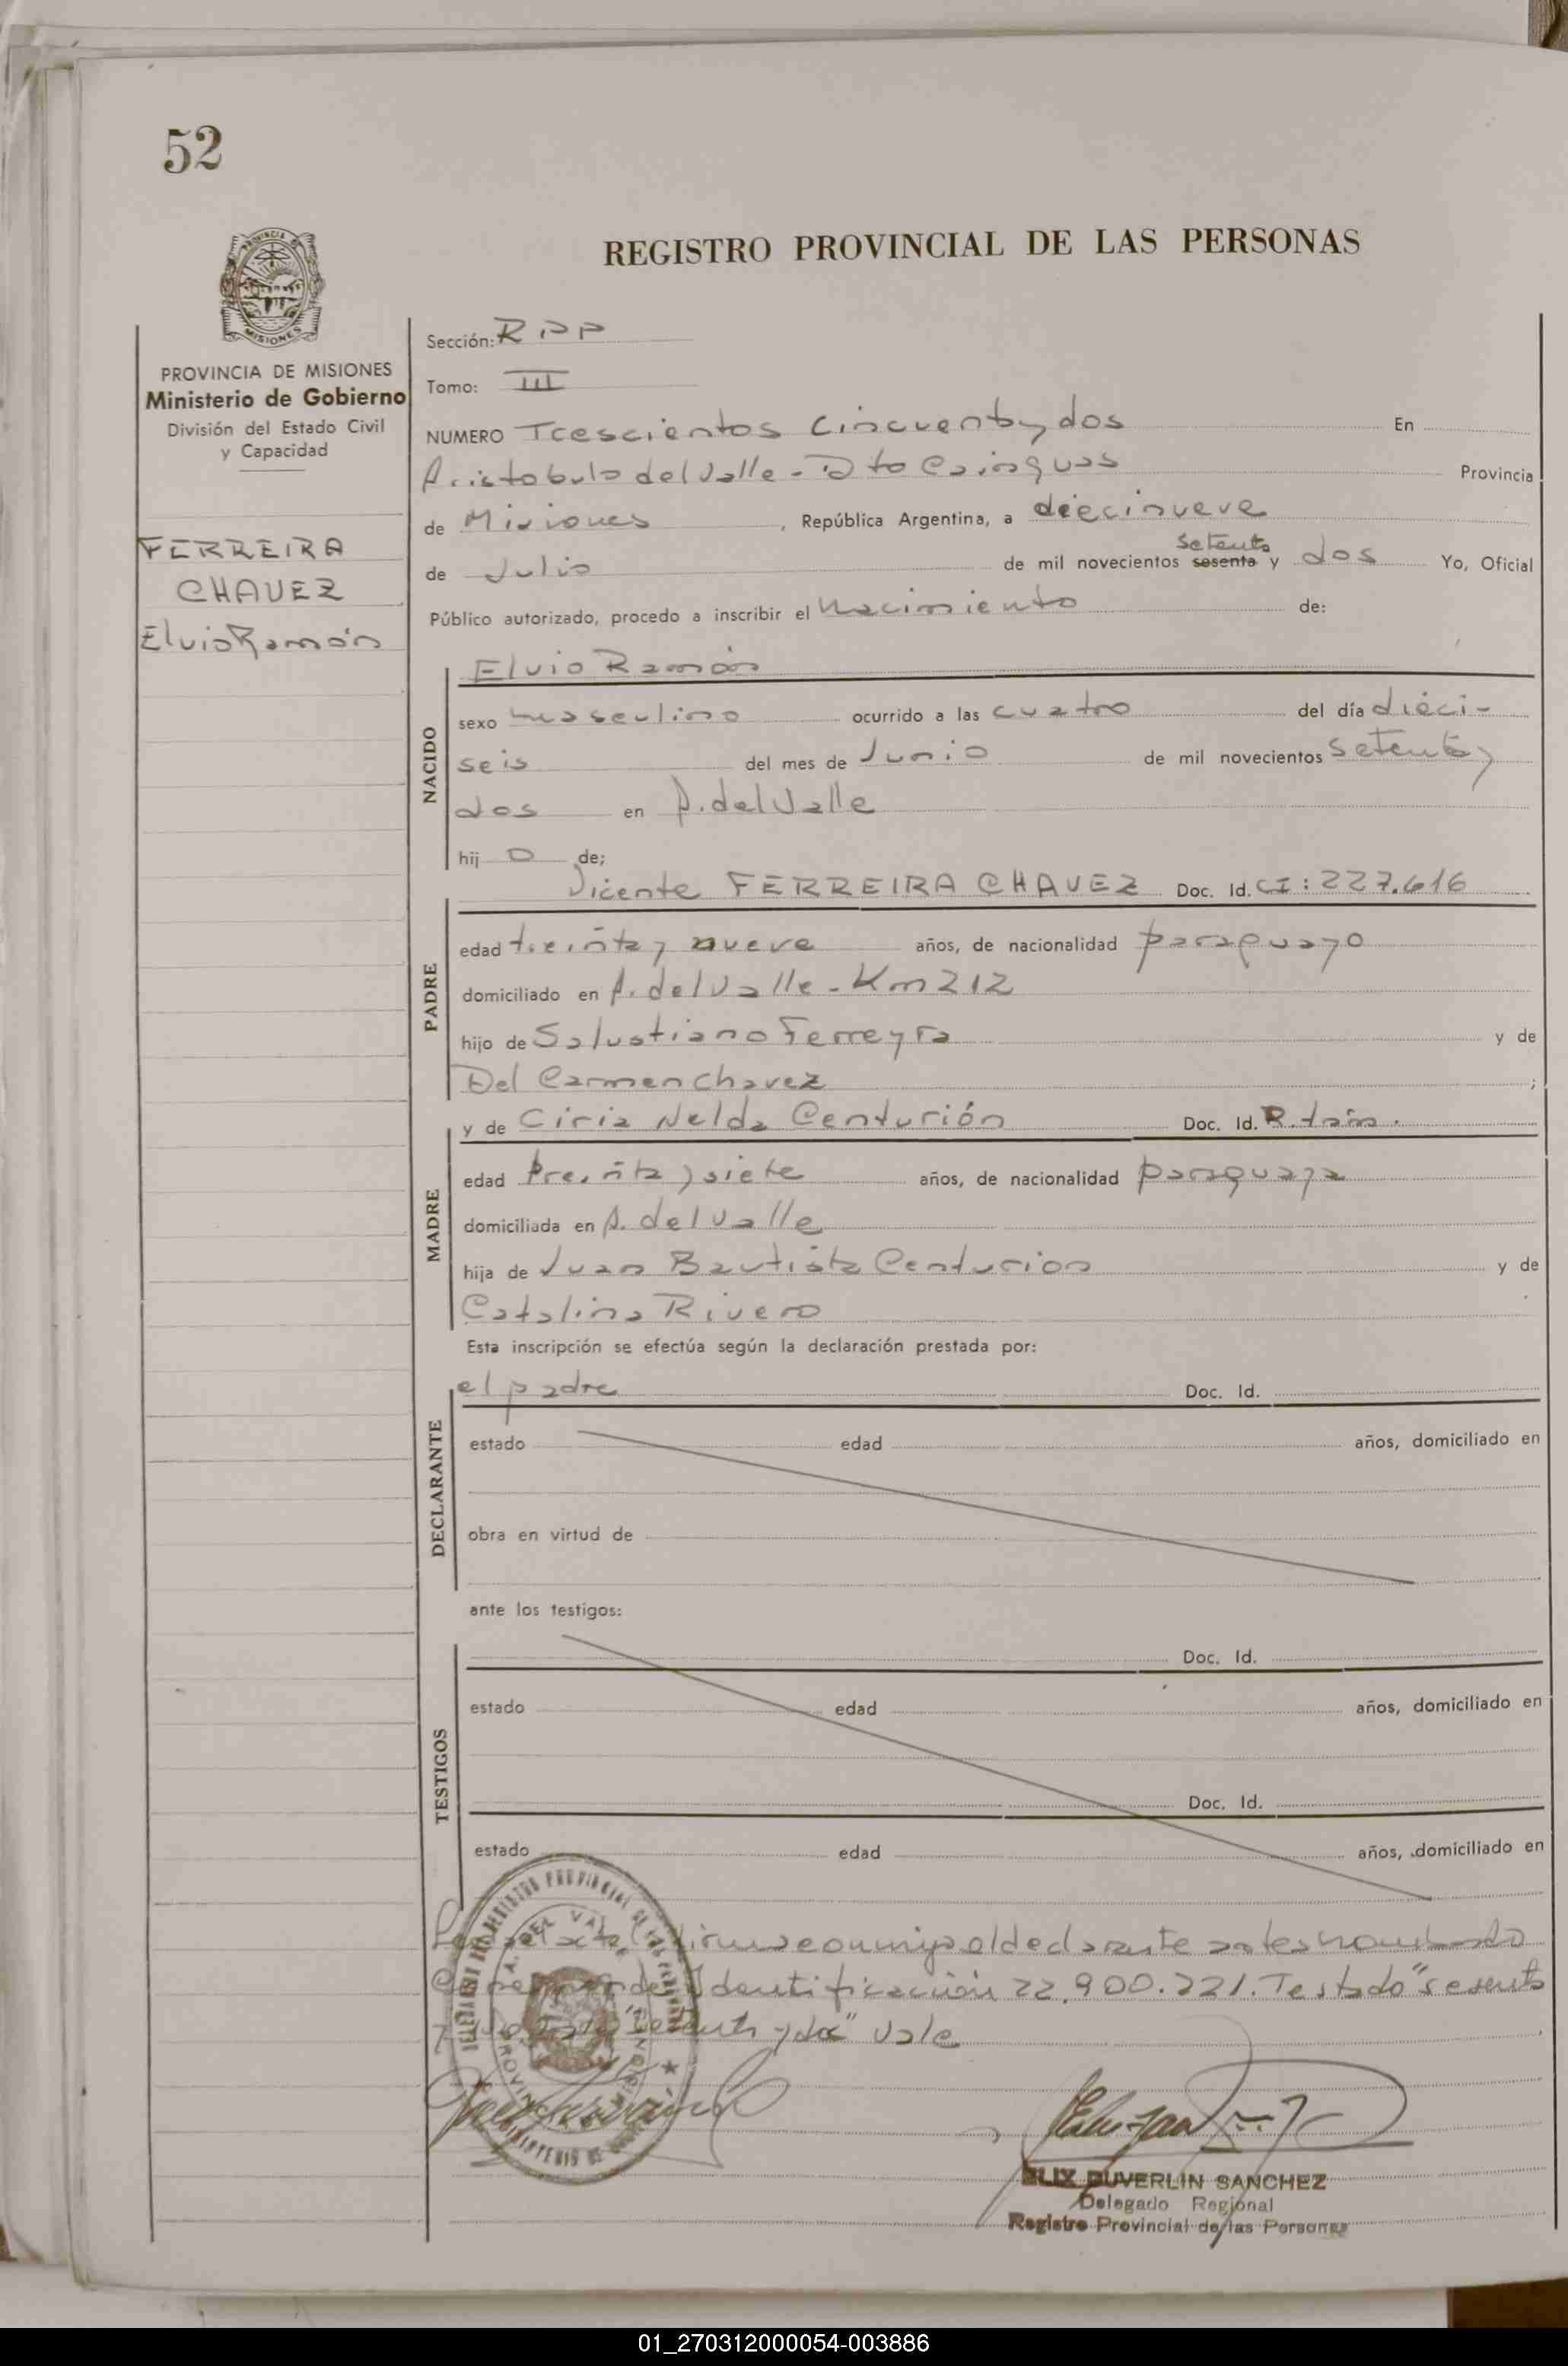 52
REGISTRO PROVINCIAL DE LAS PERSONAS
PROVINCIA DE MISIONES
Ministerio de Gobierno
División del Estado Civil
y Capacidad
FERREIRA
CHAVEZ
Elvio Ramón
Sección: RPP
Tomo: III
NUMERO Trescientos cincuenta y dos En
Aristobulo del Valle - Dto Cainguas Provincia
de Misiones, República Argentina, a diecinueve
setenta
de Julio de mil novecientos sesenta y dos Yo, Oficial
Público autorizado, procedo a inscribir el Nacimiento de:
NACIDO
Elvio Ramón
sexo masculino ocurrido a las cuatro del día dieci-
seis del mes de Junio de mil novecientos setenta y
dos en A. del Valle
hijo de;
PADRE
Vicente FERREIRA CHAVEZ Doc. Id. CI: 227.616
edad treinta y nueve años, de nacionalidad paraguayo
domiciliado en A. del Valle - Km 212
hijo de Salustiano Ferreyra y de
Del Carmen Chavez ;
MADRE
y de Ciria Nelda Centurión Doc. Id.
edad treinta y siete años, de nacionalidad paraguaya
domiciliada en A. del Valle
hija de Juan Bautista Centurion y de
Catalina Rivero
Esta inscripción se efectúa según la declaración prestada por:
DECLARANTE
el padre Doc. Id.
estado edad años, domiciliado en
obra en virtud de
ante los testigos:
TESTIGOS
Doc. Id.
estado edad años, domiciliado en
Doc. Id.
estado edad años, domiciliado en
el acta firma conmigo el declarante antes nombrado
Identificación 22.900.221. Testado "sesenta
setenta y dos" Vale
FELIX DUVERLIN SANCHEZ
Delegado Regional
Registro Provincial de las Personas
01_270312000054-003886